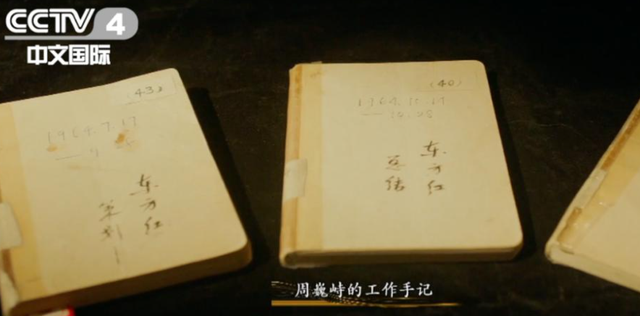 CCTV 4
中文国际
(43)
1964.7.17
东方红
策划
(40)
东方红
总结
周巍峙的工作手记